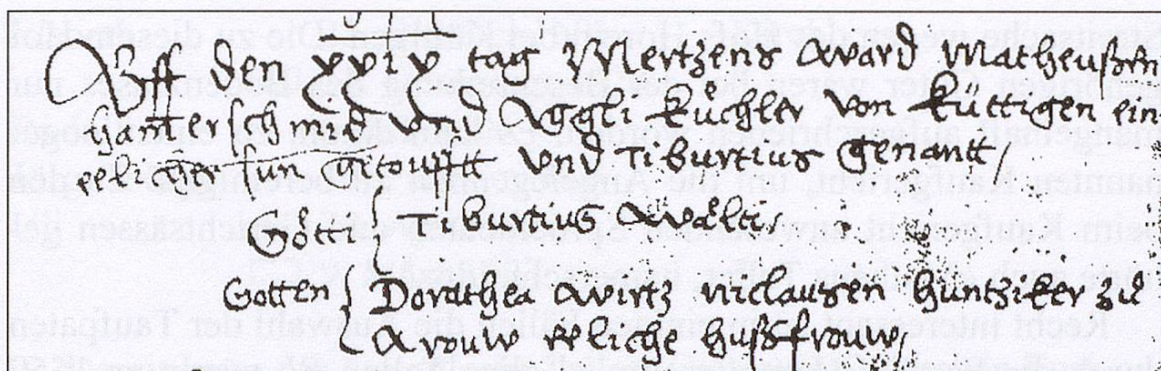 Vff den xxix tag Mertzens ward Matheußen
Hamerschmid vnd Kuchler von Küttigen ein
eelichter sun getoufft vnd Tiburtius genantt /
Götti / Tiburtius Wälti
Gotten / Dorathea Wirtz Niclausen Huntziker zu
Arouw eeliche hußfrouw /